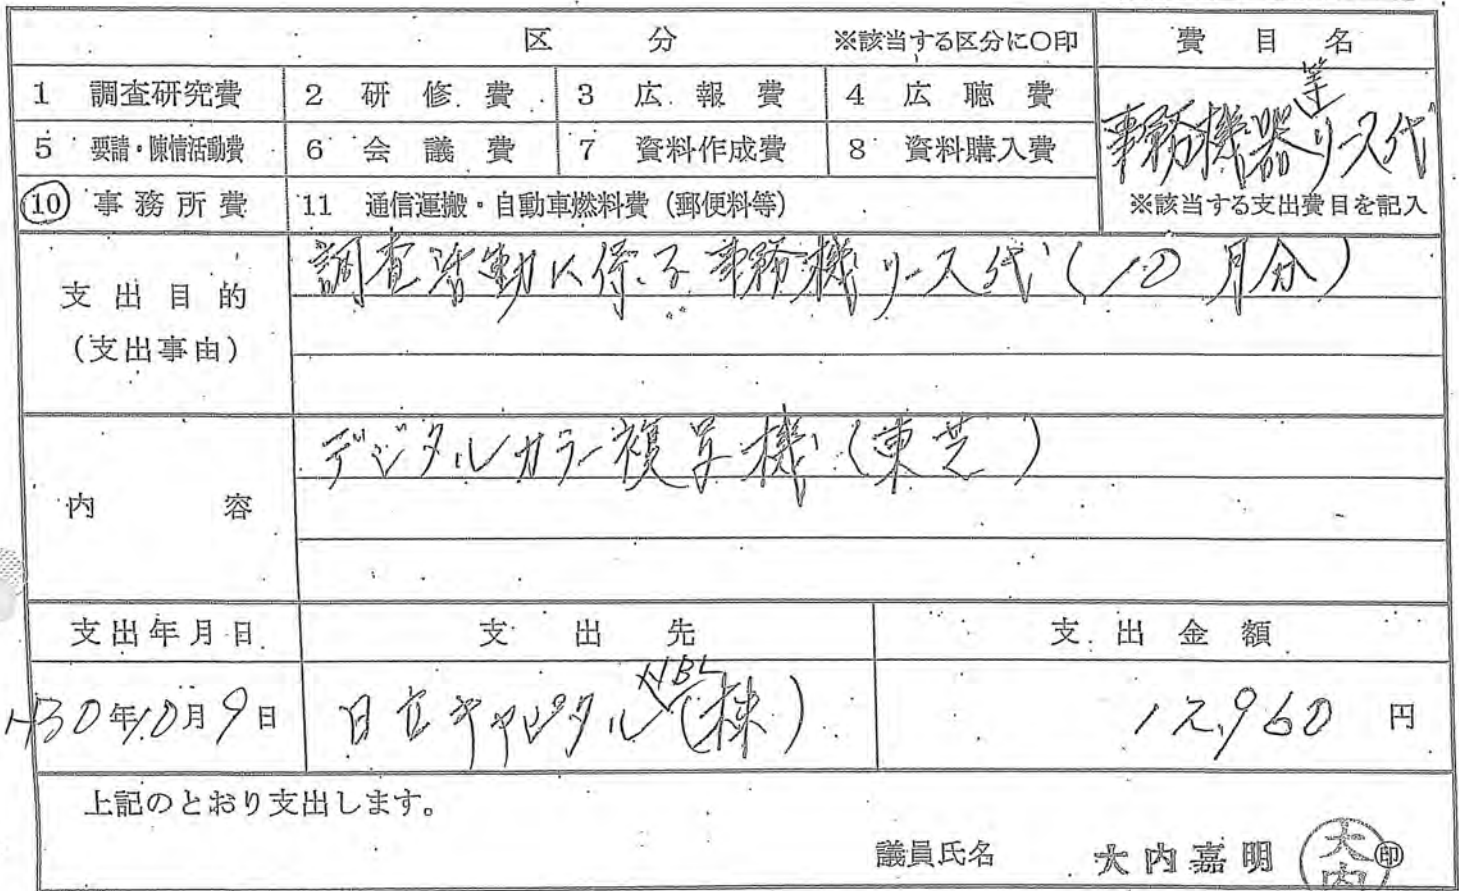 区 分 ※該当する区分に○印 費目名
1 調査研究費 2 研修費 3 広報費 4 広聴費
5 要請・陳情活動費 6 会議費 7 資料作成費 8 資料購入費
事務機器等リース代
⑩ 事務所費 11 通信運搬・自動車燃料費(郵便料等) ※該当する支出費目を記入
支出目的
(支出事由)
調査活動に係る事務機リース代(10月分)
内 容
デジタルカラー複写機(東芝)
支出年月日 支出先 支出金額
H30年10月9日 日立キャピタルNBL(株) 12,960円
上記のとおり支出します。
議員氏名 大内嘉明 大内 ㊞